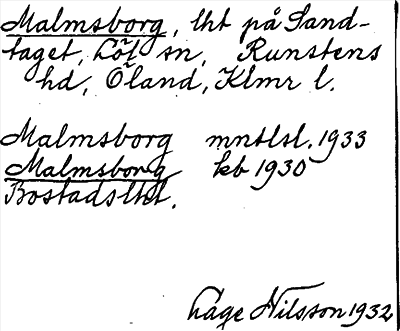 Malmsborg, lht på Sand-
taget, Löt sn, Runstens
hd, Öland, Klmr l.
Malmsborg mntlsl. 1933
Malmsborg kb 1930
Bostadslht.
Åge Nilsson 1932